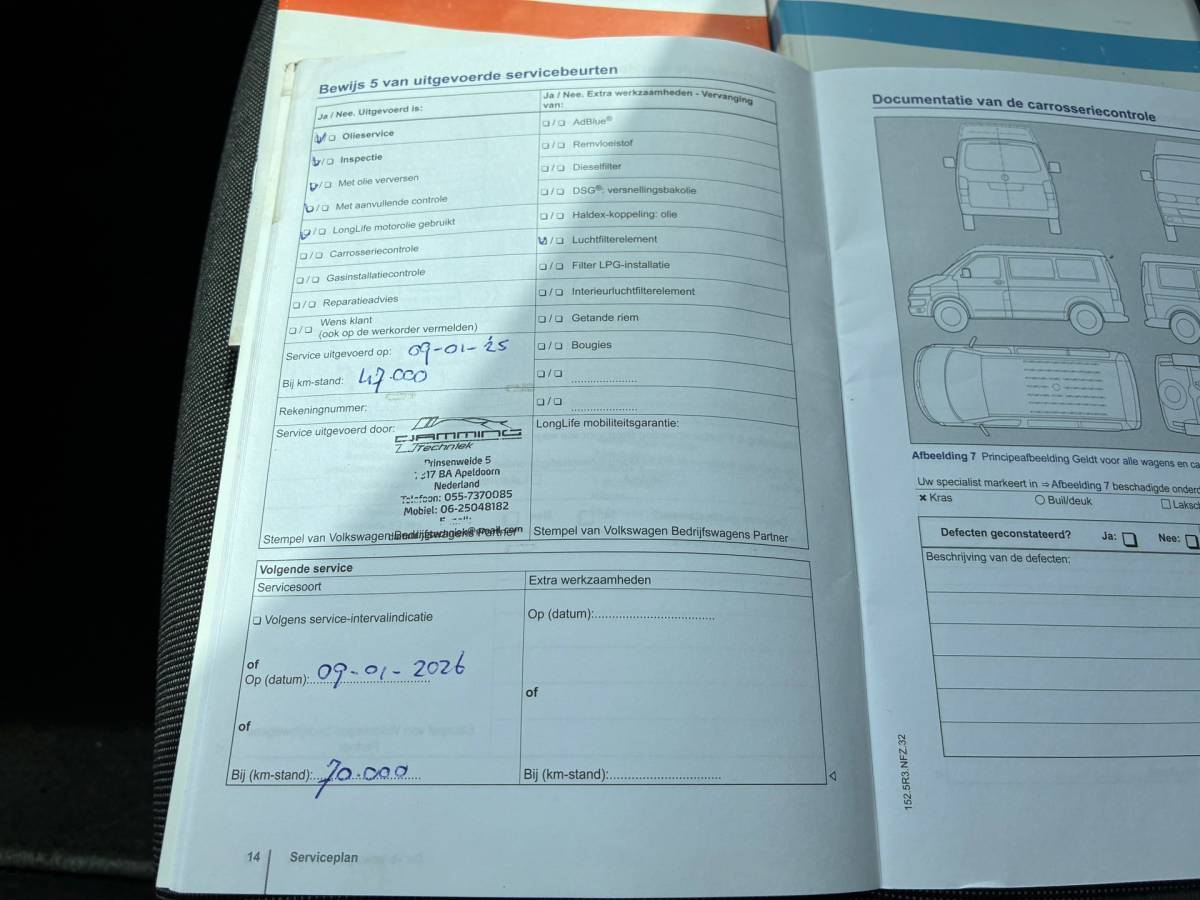 Bewijs 5 van uitgevoerde servicebeurten
Ja / Nee. Uitgevoerd is:
Olieservice
Inspectie
Met olie verversen
Met aanvullende controle
LongLife motorolie gebruikt
Carrosseriecontrole
Gasinstallatiecontrole
Reparatieadvies
Wens klant
(ook op de werkorder vermelden)
Service uitgevoerd op: 09-01-25
Bij km-stand: 47.000
Rekeningnummer:
Service uitgevoerd door:
Techniek
Prinsenweide 5
BA Apeldoorn
Nederland
Telefoon: 055-7370085
Mobiel: 06-25048182
Stempel van Volkswagen Bedrijfswagens Partner
Ja / Nee. Extra werkzaamheden - Vervanging
van:
AdBlue®
Remvloeistof
Dieselfilter
DSG®: versnellingsbakolie
Haldex-koppeling: olie
Luchtfilterelement
Filter LPG-installatie
Interieurluchtfilterelement
Getande riem
Bougies
LongLife mobiliteitsgarantie:
Stempel van Volkswagen Bedrijfswagens Partner
Volgende service
Servicesoort
Volgens service-intervalindicatie
of
Op (datum): 09-01-2026
of
Bij (km-stand): 70.000
Extra werkzaamheden
Op (datum):
of
Bij (km-stand):
14 Serviceplan
Documentatie van de carrosseriecontrole
Afbeelding 7 Principeafbeelding Geldt voor alle wagens en ca
Uw specialist markeert in ⇒ Afbeelding 7 beschadigde onderd
× Kras
Buil/deuk
Laksch
Defecten geconstateerd? Ja: Nee:
Beschrijving van de defecten:
152.5R3.NFZ.32